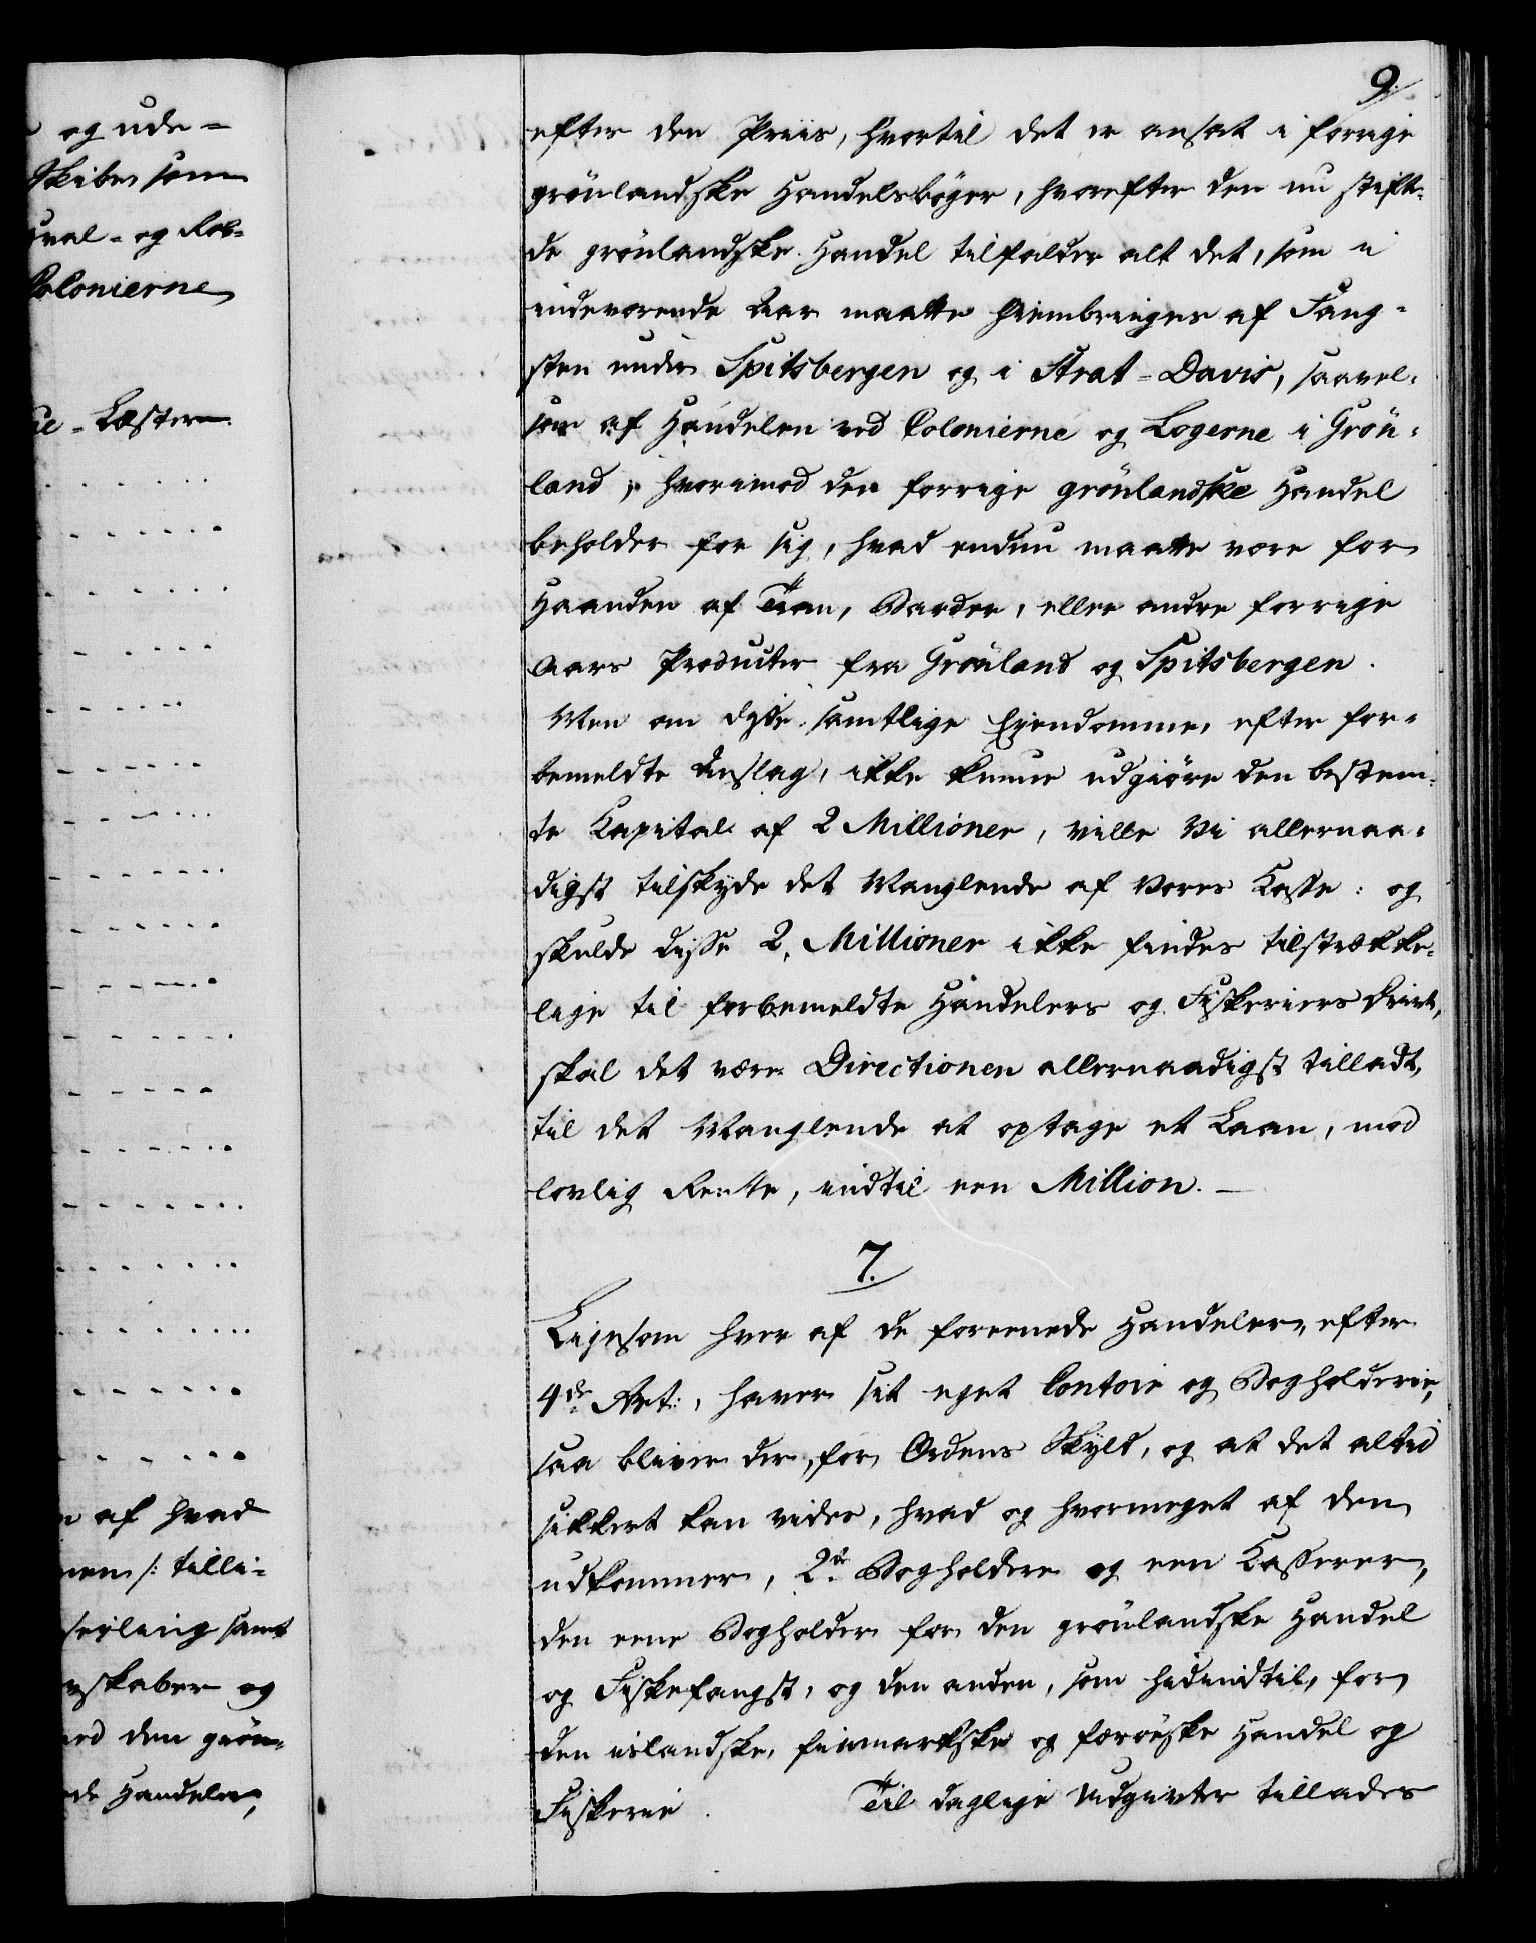 og ude-
Skibe som
hval- og Rob-
Colonierne
Læsterne
af hvad
/: tilli-
seyling samt
skaber og
den grön-
Handeler,
9.
efter den Priis, hvortil det er ansat i forrige
grönlandske Handelsböger, hvorefter den nu stift-
de grönlandske Handel tilfalder alt det, som i
indeværende Aar maatte hiembringes af Fang-
sten under Spitsbergen og i Strat-Davis, saavel-
som af Handelen ved Colonierne og Logerne i Grön-
land; hvorimod den forrige grönlandske Handel
beholder for sig, hvad endnu maatte være for
Haanden af Tran, Barder, eller andre forrige
Aars Producter fra Grönland og Spitsbergen.
Men om disse samtlige Eiendomme, efter for-
bemeldte Anslag, ikke kunne udgiöre den bestem-
te Kapital af 2 Millioner, ville Vi allernaa-
digst tilskyde det Manglende af Vores Kasse: og
skulde disse 2. Millioner ikke findes tilstrække-
lige til forbemeldte Handelers og Fiskeriers Drivt,
skal det være Directionen allernaadigst tilladt,
til det Manglende at optage et Laan, mod
lovlig Rente, indtil een Million.-
7.
Ligesom hver af de foreenede Handeler, efter
4de Art:, haver sit eget Contoir og Bogholderie,
saa bliver der, for Ordens Skyld, og at det altid
sikkert kan vides, hvad og hvormeget af den
udkommer, 2de Bogholdere og een Kasserer,
den eene Bogholder for den grönlandske Handel
og Fiskefangst, og den anden, som hidindtil, for
den islandske, finmarkske og færöiske Handel og
Fiskerie. Til daglige Udgivter tillades